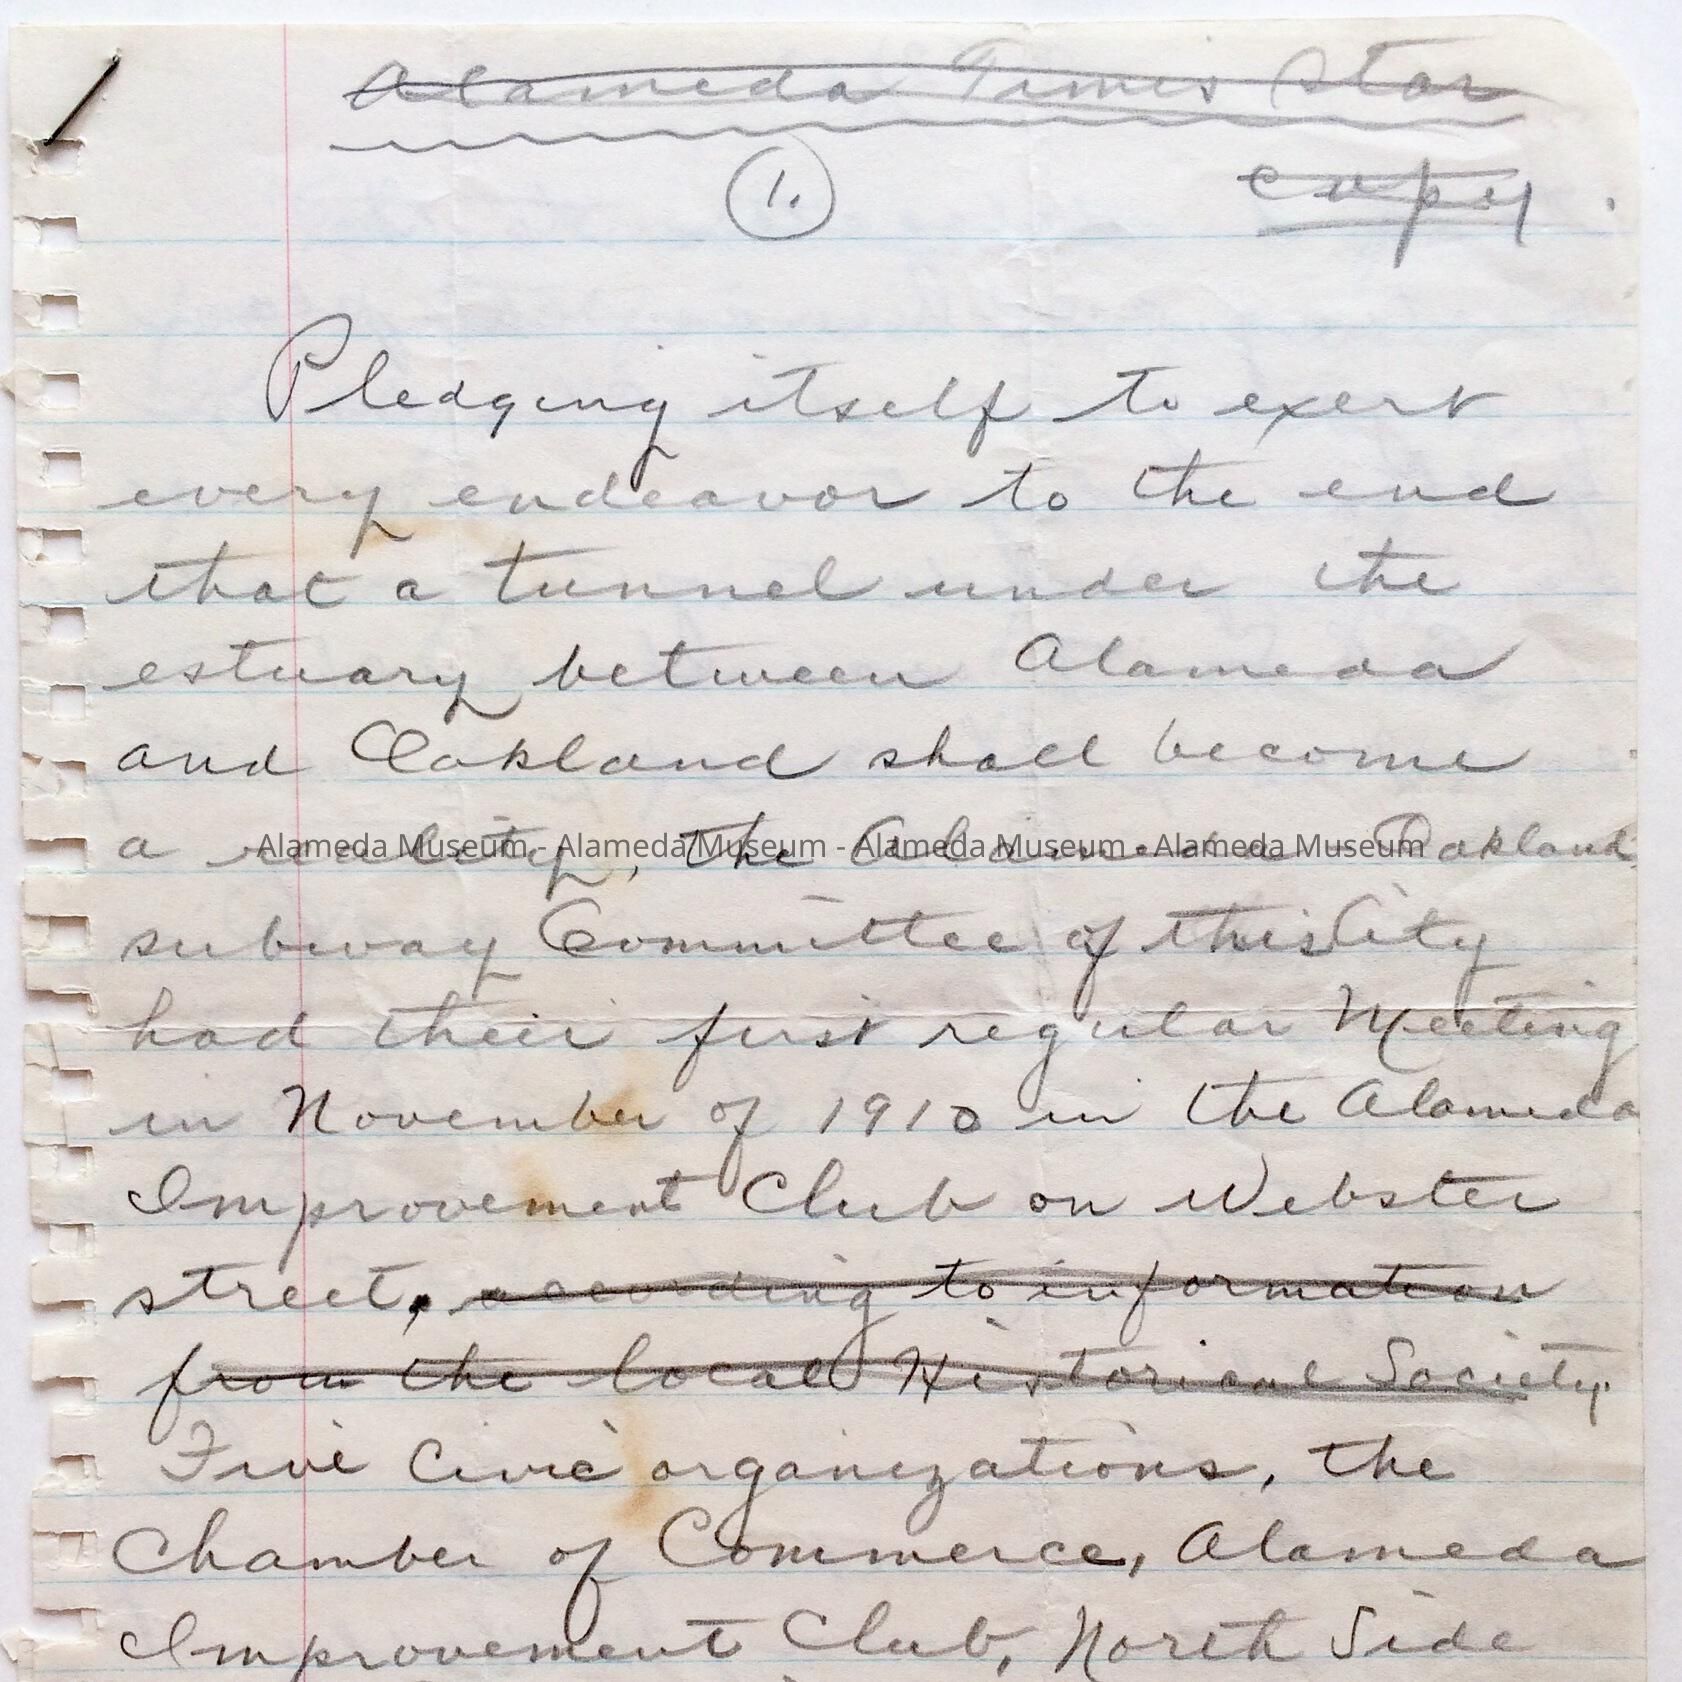 Alameda Times Star
1.
copy
Pledging itself to exert
every endeavor to the end
that a tunnel under the
estuary between Alameda
and Oakland shall become
a reality, the Alameda Oakland
Alameda Museum - Alameda Museum - Alameda Museum - Alameda Museum
subway Committee of this City
had their first regular Meeting
in November of 1910 in the Alameda
Improvement Club on Webster
street, according to information
from the local Historical Society.
Five Civic organizations, the
Chamber of Commerce, Alameda
Improvement Club, North Side